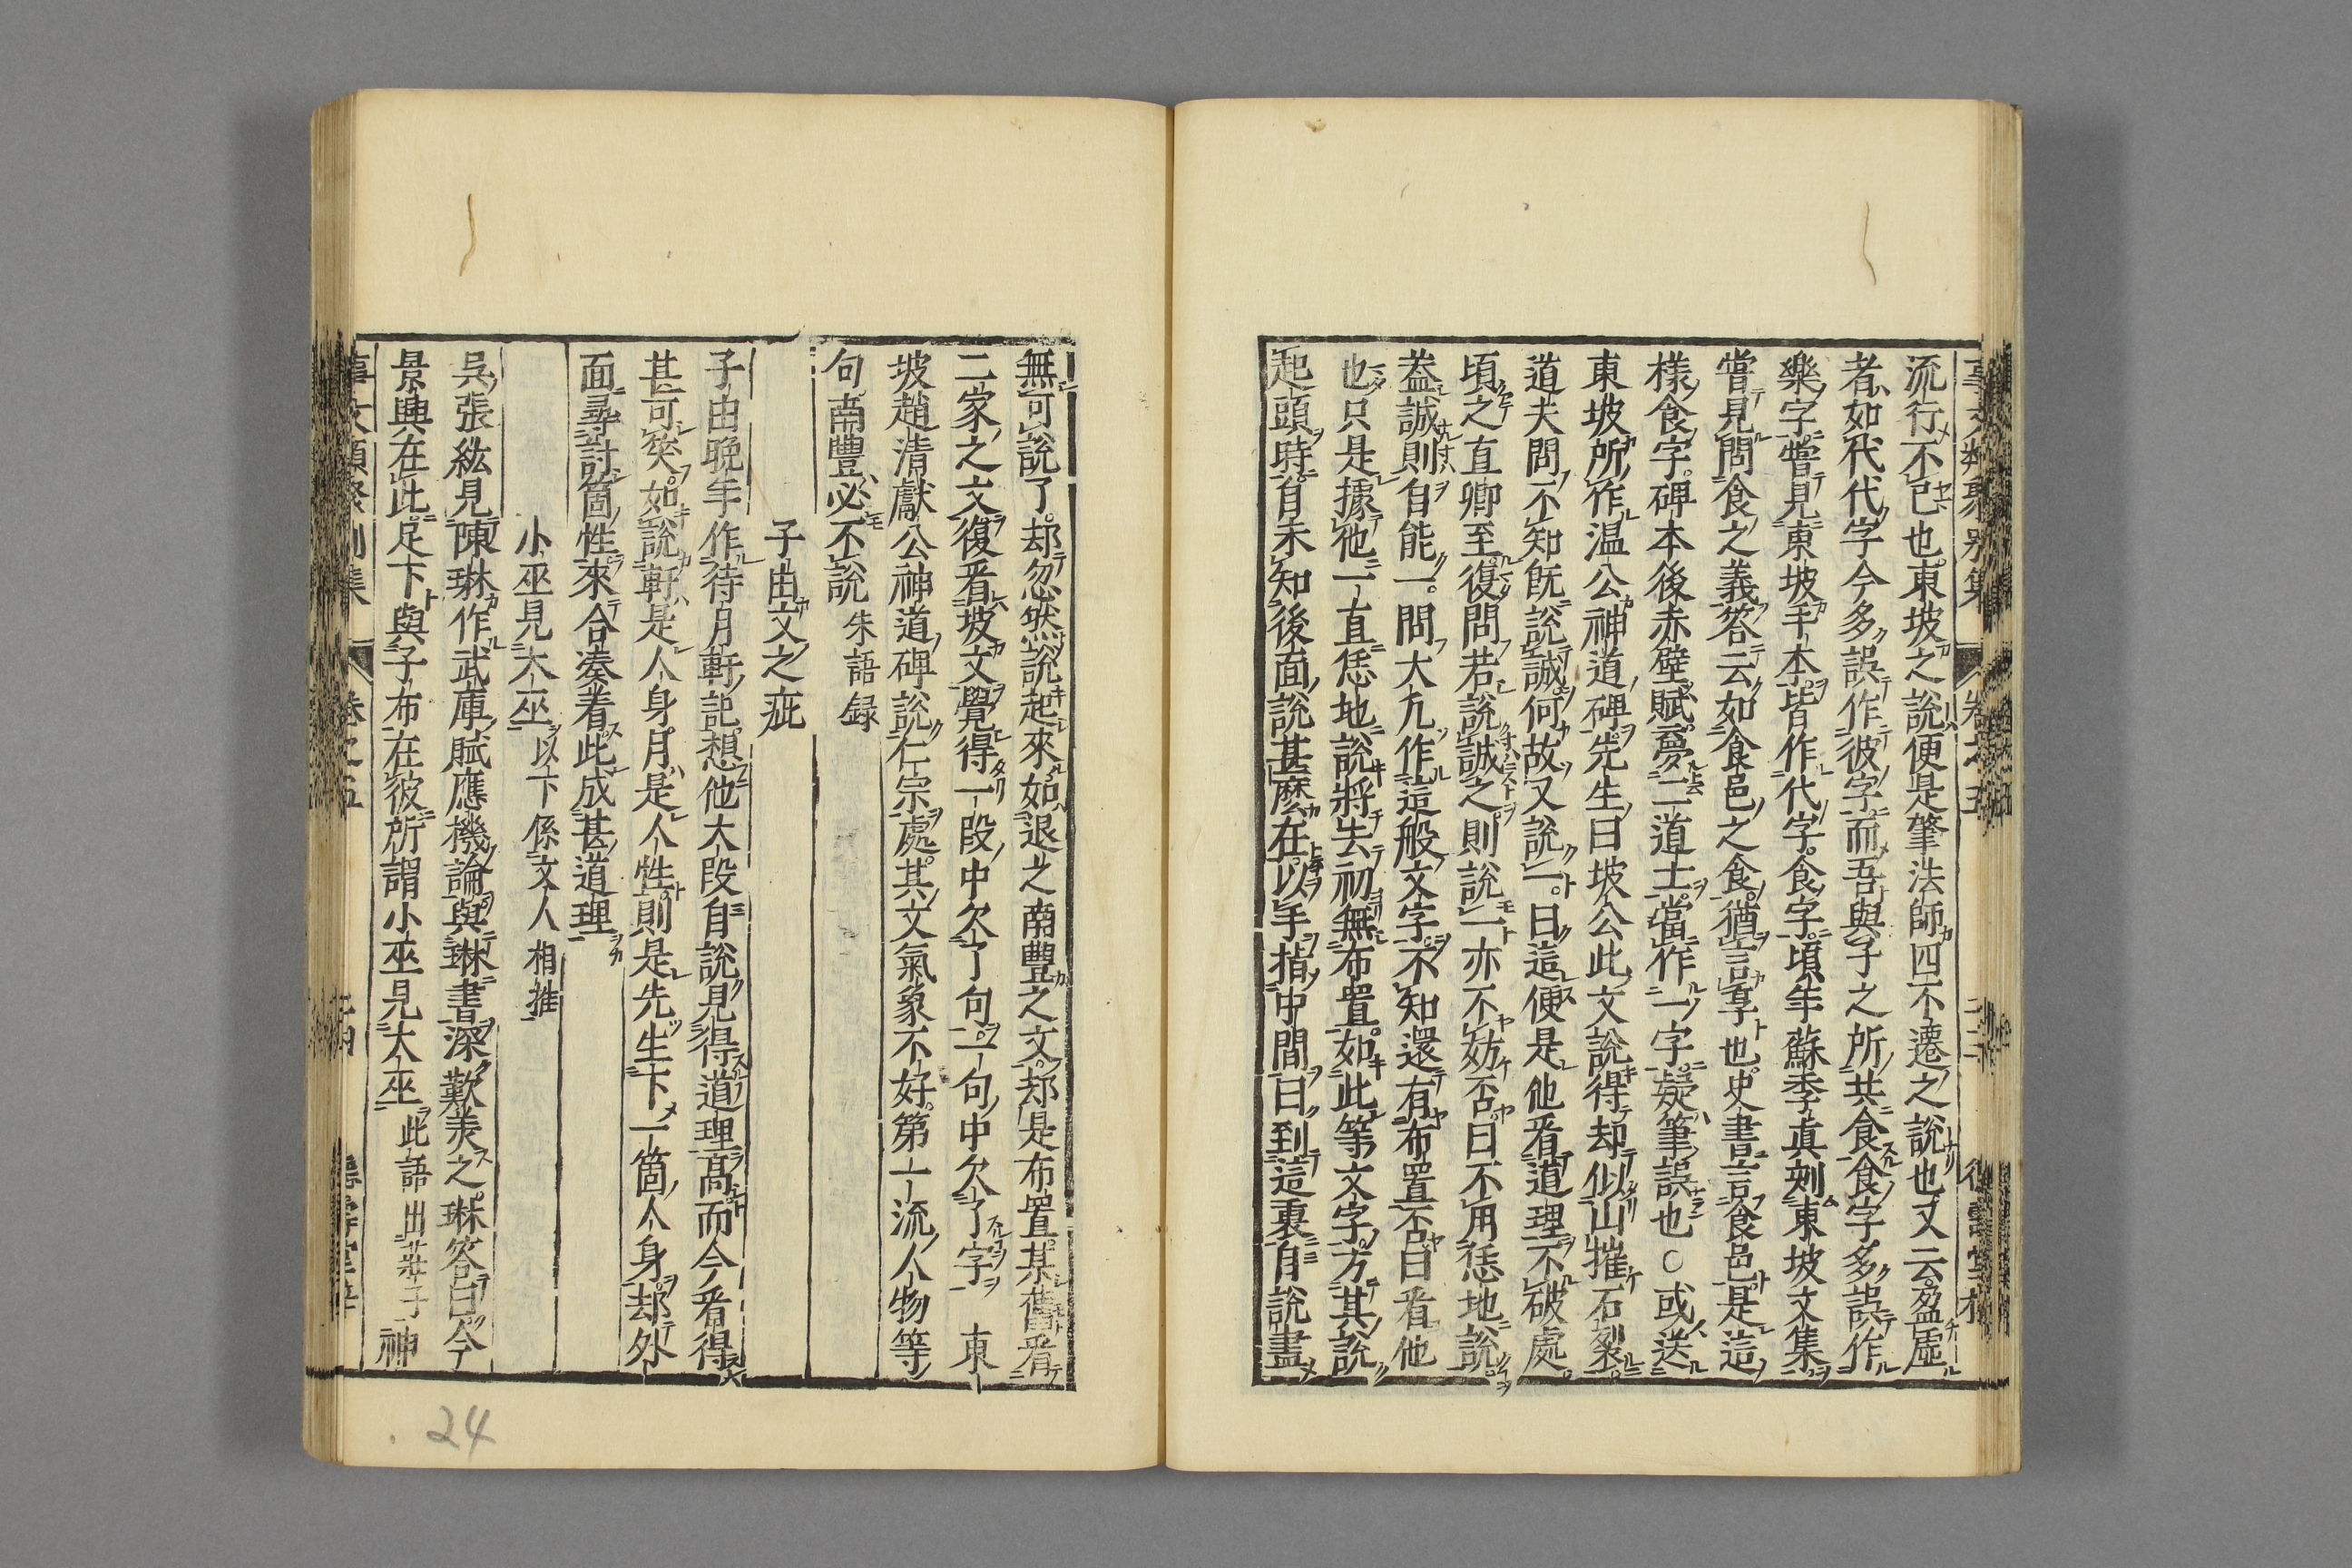 流行不已也東坡之說便是肇法師四不遷之說也又云盈虛
者如代代字今多誤作彼字而吾與子之所共食食字多誤作
樂字嘗見東坡手本皆作代字食字頃年蘇季真刻東坡文集
嘗見問食之義答云如食邑之食猶言享也史書言食邑是這
樣食字碑本後赤壁賦夢二道士當作一字疑筆誤也○或送
東坡所作温公神道碑先生曰坡公此文說得却似山摧石裂
道夫問不知既說誠何故又說一曰這便是他看道理不破處
頃之直卿至復問若說誠之則說一亦不妨否曰不用恁地說
蓋誠則自能一問大凢作這般文字不知還有布置否曰看他
也只是據他一直恁地說將去初無布置如此等文字方其說
起頭時自未知後面說甚麽在以手指中間曰到這裏自說盡
無可說了却忽然說起來如退之南豐之文却是布置某舊看
二家之文復看坡文覺得一段中欠了句一句中欠了字 東
坡趙清獻公神道碑說仁宗處其文氣象不好第一流人物等
句南豐必不說 朱語録
子由文之疵
子由晚年作待月軒記想他大段自說見得道理高而今看得
甚可笑如說軒是人身月是人性則是先生下一箇人身却外
面尋討箇性來合湊着此成甚道理
小巫見大巫 以下係文人相推
吳張紘見陳琳作武庫賦應機論與琳書深歎美之琳答曰今
景興在此足下與子布在彼所謂小巫見大巫 此語出莊子 神
卷之五